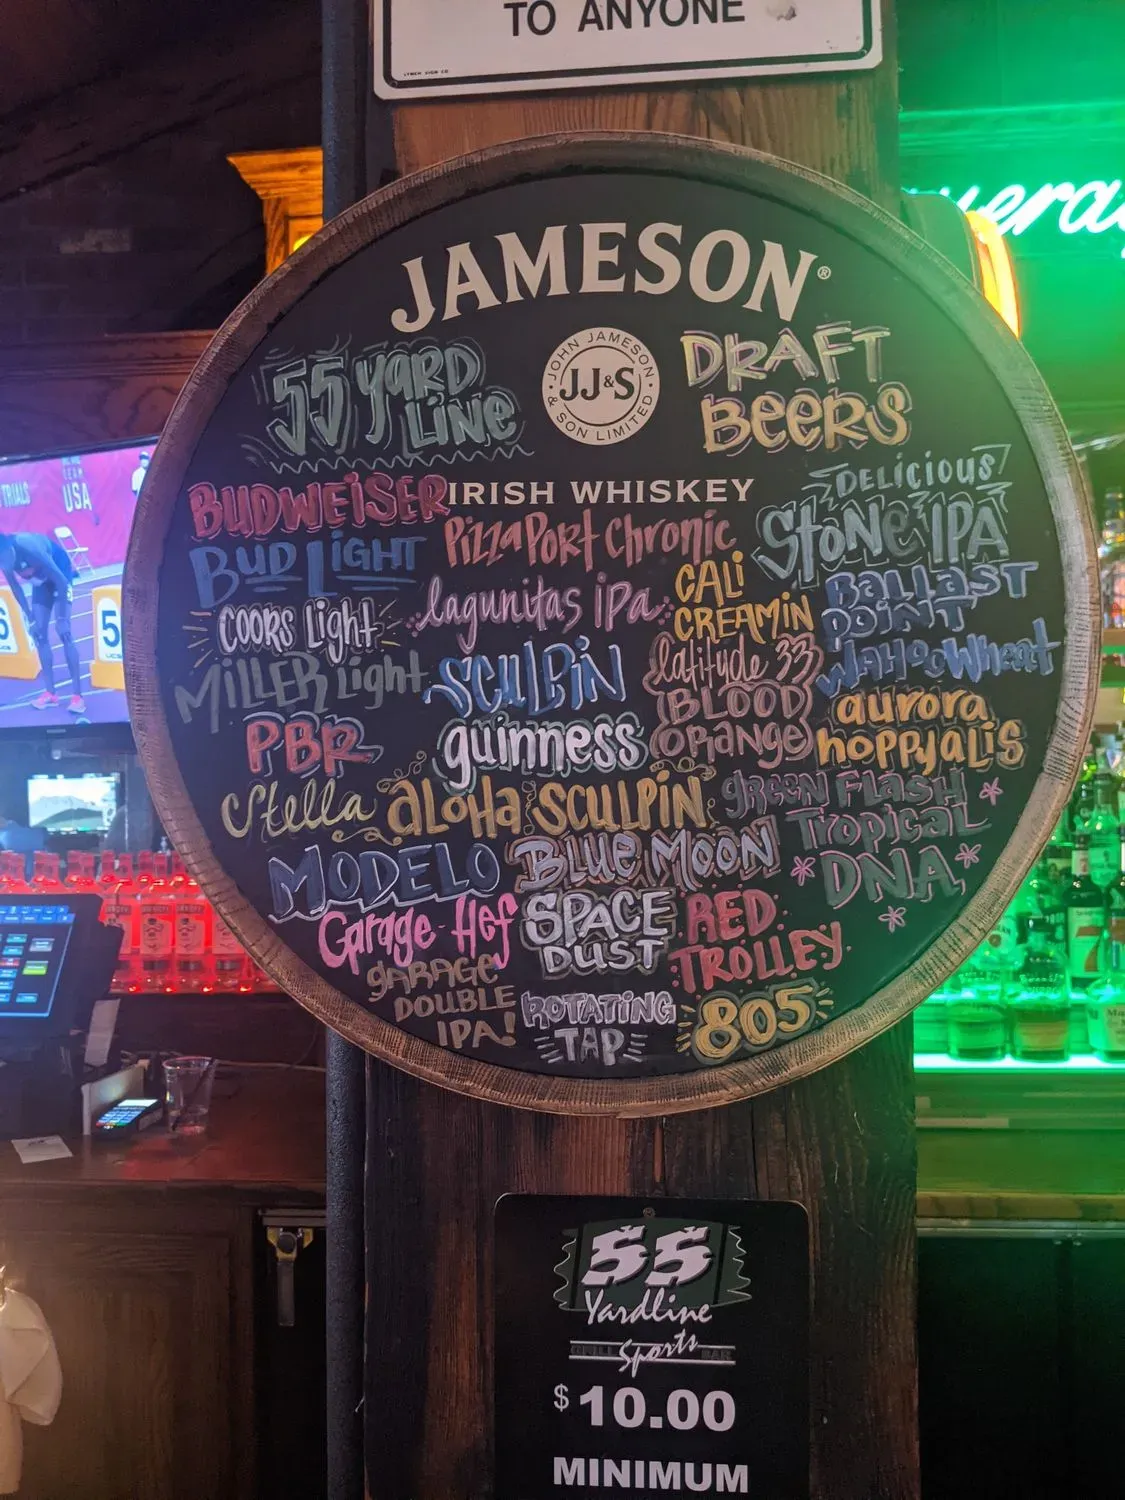 TO ANYONE
LYNCH SIGN CO.
JAMESON®
JOHN JAMESON
JJ&S
& SON LIMITED
IRISH WHISKEY
55 YARD
LINE
DRAFT
BEERS
BUDWEISER
BUD LIGHT
COORS Light
MILLER Light
PBR
Stella
MODELO
Garage Hef
GARAGE
DOUBLE
IPA!
Pizza Port Chronic
lagunitas ipa
SCULPIN
guinness
aloha SCULPIN
BLUE MOON
SPACE
DUST
ROTATING
TAP
CALI
CREAMIN
latitude 33
BLOOD
ORANGE
RED
TROLLEY
805
DELICIOUS
STONE IPA
BALLAST
POINT
WAHOO Wheat
aurora
hoppyalis
GREEN FLASH
TROPICAL
DNA
USA
TRIALS
5
uera
55
Yardline
GRILL Sports BAR
$10.00
MINIMUM